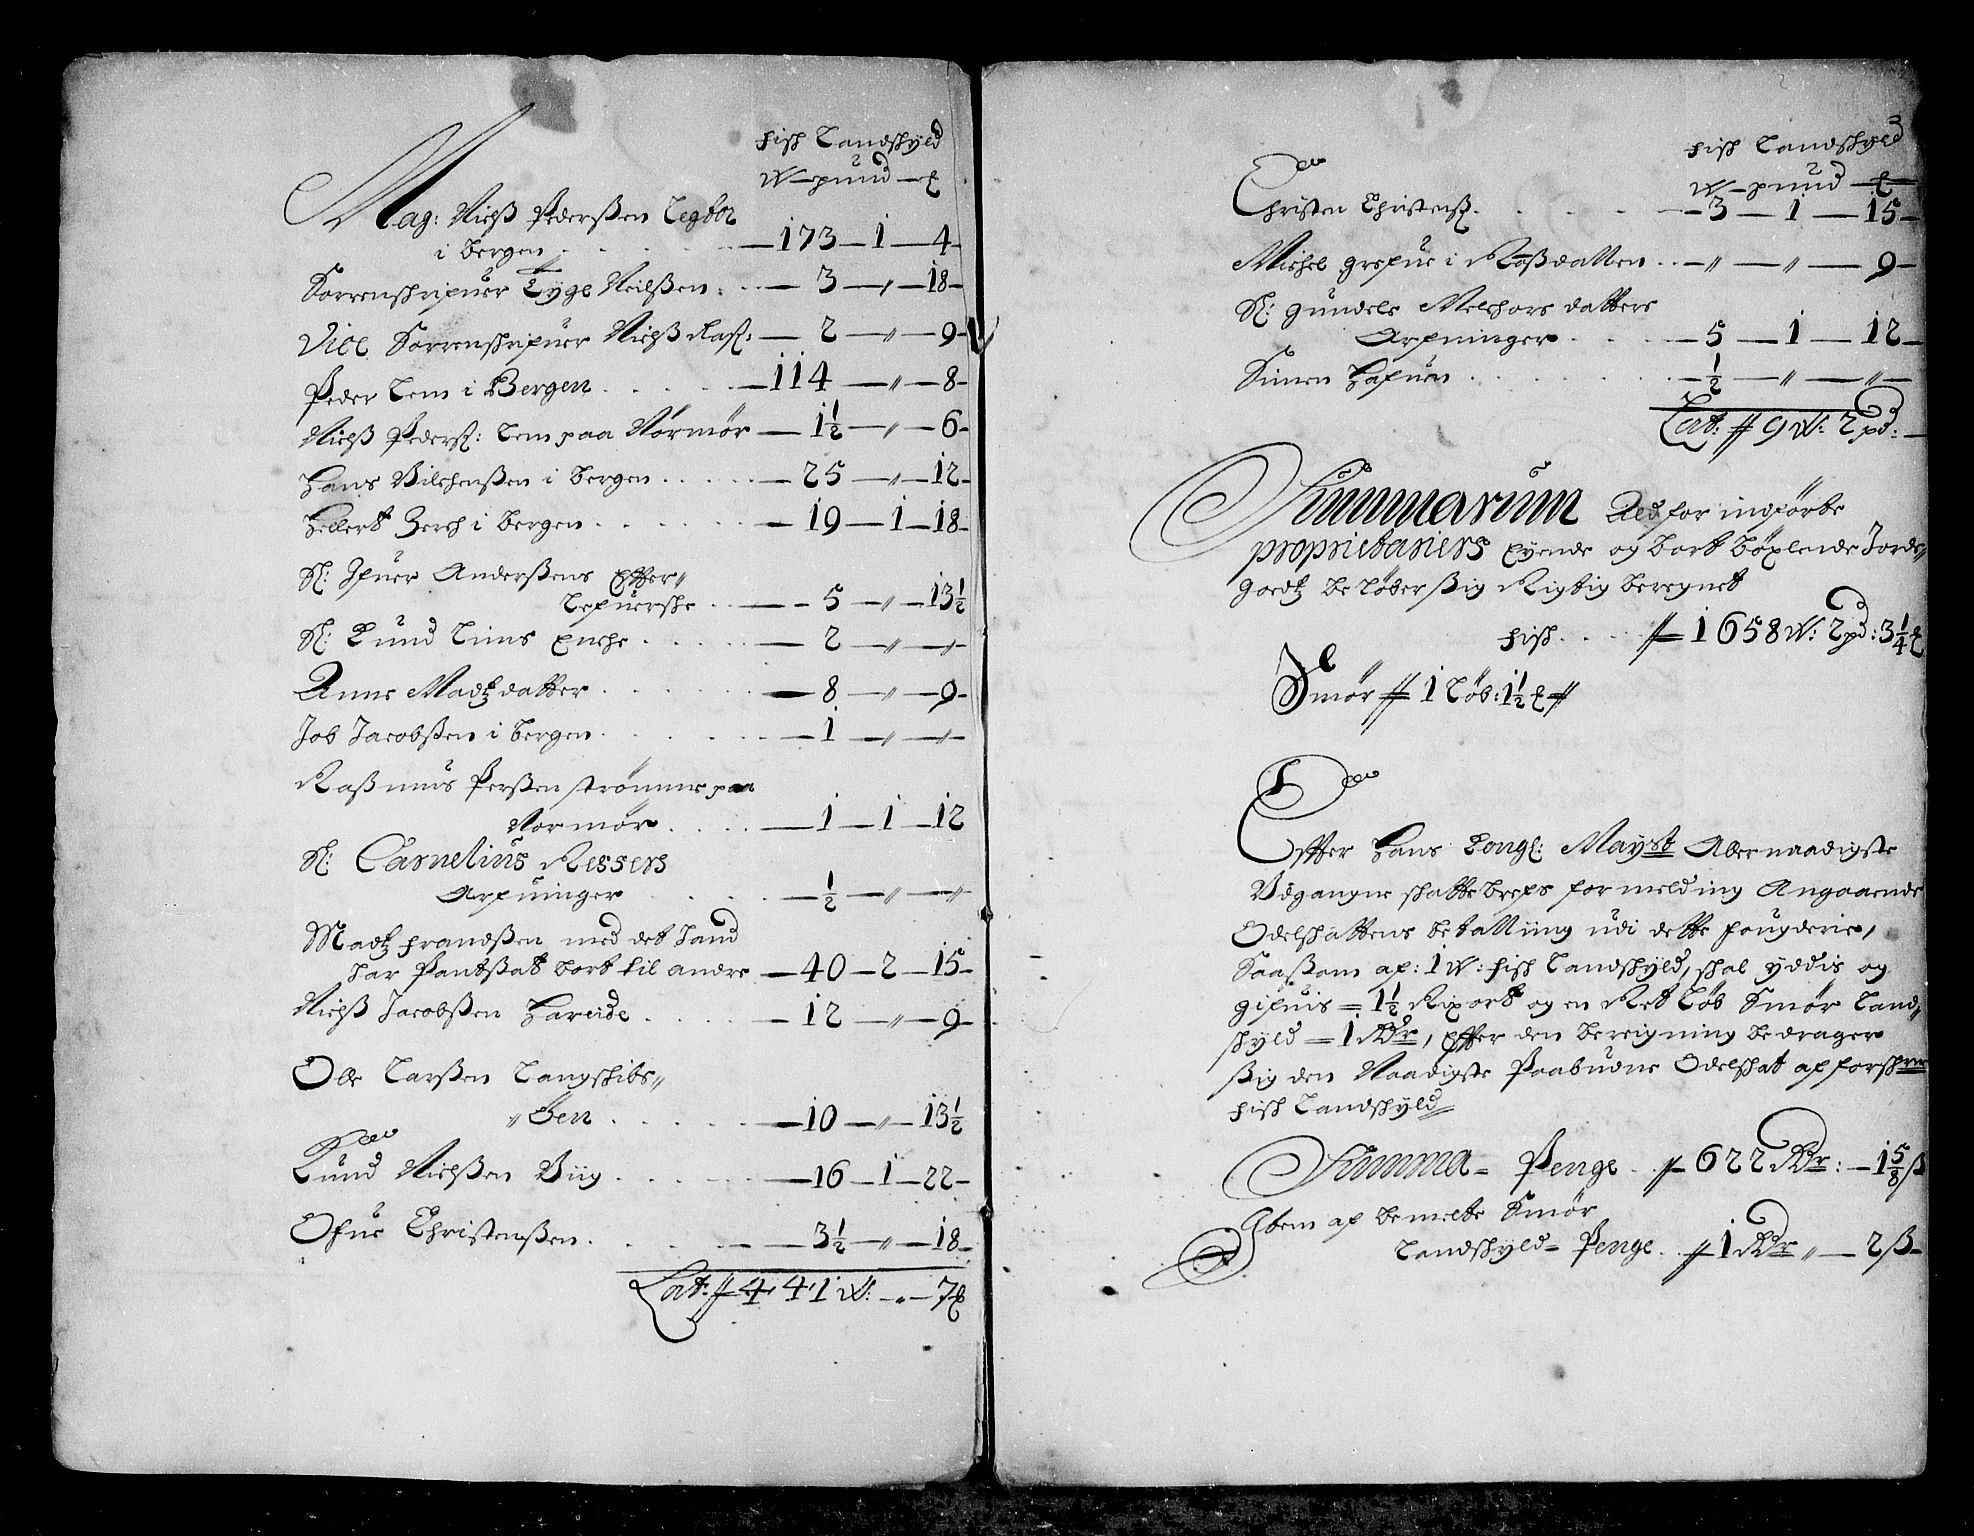 fisk Landskÿld
W — pund — ℔
Mag: Nielß Pederßen Legtor
i bergen . . . — 173 — 1 — 4 —
Sorrenskrifuer Tÿge Neilßen . . — 3 — „ — 18 —
Vice Sorrenskrifuer Nielß — 2 — „ — 9 —
Peder Lem i Bergen . . . — 114 — „ — 8 —
Nielß Peders: Lem paa Normør — 1½ — „ — 6 —
Hans Vilchenßen i bergen . . . — 25 — „ — 12 —
Hellert i bergen . . . — 19 — 1 — 18 —
Sl: Ifuer Anderßens Effter„
Lefuerske . . — 5 — „ — 13½
Sl: Lund Lims Enche . . . — 2 — „ — „ —
Anne Madtz datter . . . — 8 — „ — 9 —
Job Jacobßen i bergen . . . — 1 — „ — „ —
Raßmus Perßen strømme paa
Normør . . . — 1 — 1 — 12
Sl: Carnelius Ressers
Arfuinger . . . — ½ — „ — „
Madtz frandßen med det hand
har Pantßat bort til andre — 40 — 2 — 15 —
Nielß Jacobßen Hareide . . . — 12 — „ — 9 —
Ole Larßen Langskibs„
„öen . . . — 10 — „ — 13½
Knud Nielßen Viig . . . — 16 — 1 — 22 —
Ofue Christenßen . . . — 3½ — „ — 18 —
Lat: 441 W: — „ — 7 ℔
fisk Landskÿld
W — pund — ℔
Christen Christenß . . . — 3 — 1 — 15 —
Michel grefue i Roßdallen . . — „ — „ — 9 —
Sl: gundele Melchors datters
Arfuinger . . . — 5 — 1 — 12 —
Simen Hafuen . . . — ½ — „ — „ —
Lat: 9 W: 2 pd: —
Summarum Ald for indförte
proprietariers Eyende og bort böxlende Jorde„
Goedtz beløber ßig Rigtig beregnet
fisk . . . 1658 W: 2 pd: 3¼ ℔
Smör 1 Löb: 1½ ℔
Effter Hans Kongl: Mayst Allernaadigste
Udgangne skattebrefs formelding Angaaende
Odelskattens betalling udi dette fougderie,
Saaßom af: 1 W: fisk Landskÿld, skal ÿddis og
gifuis = 1½ Rixort og en Ret Löb Smör Land„
skÿld = 1 Rdr, Effter den bereigning bedrager
ßig den Naadigste Paabudne Odelskat af forskrne
fisk Landskÿld
Summa = Penge . 622 Rdr: — 1⅝ ß
Item af bemelte Smör
Landskÿld = Penge . 1 Rdr „ — 2 ß —